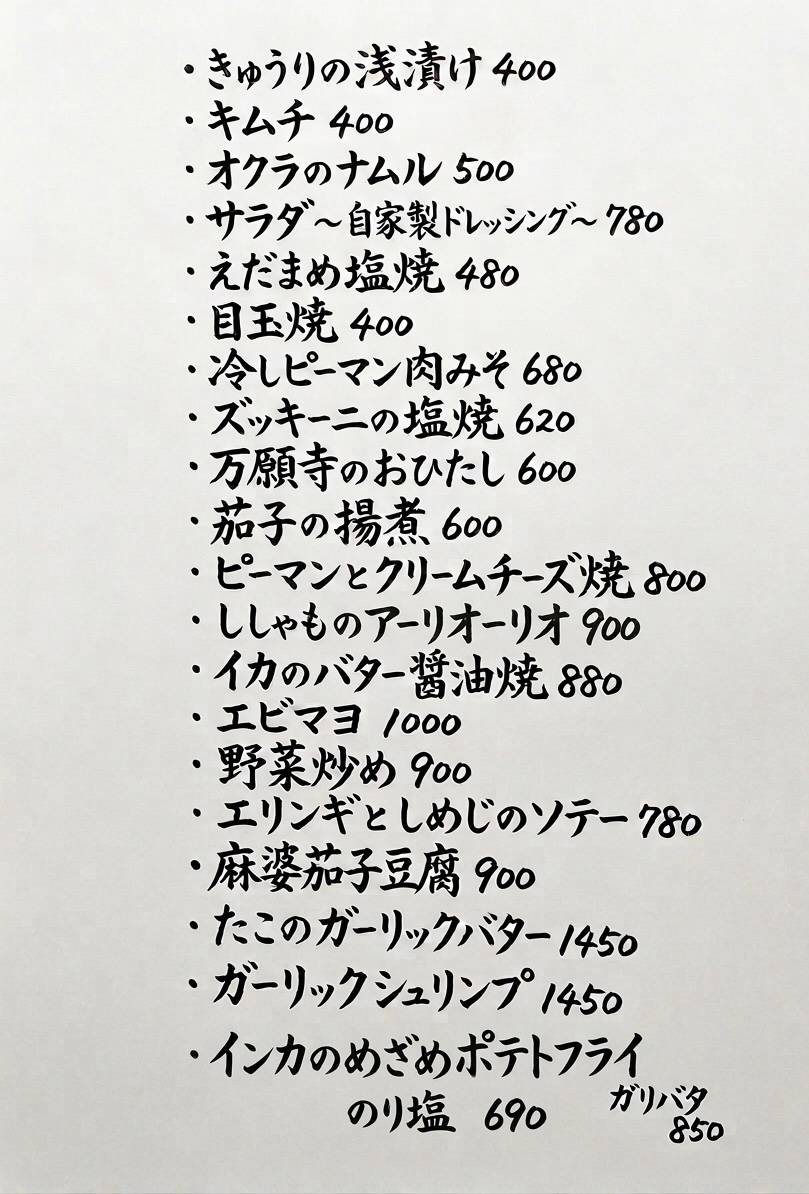 ・きゅうりの浅漬け 400
・キムチ 400
・オクラのナムル 500
・サラダ～自家製ドレッシング～ 780
・えだまめ塩焼 480
・目玉焼 400
・冷しピーマン肉みそ 680
・ズッキーニの塩焼 620
・万願寺のおひたし 600
・茄子の揚煮 600
・ピーマンとクリームチーズ焼 800
・ししゃものアーリオーリオ 900
・イカのバター醤油焼 880
・エビマヨ 1000
・野菜炒め 900
・エリンギとしめじのソテー 780
・麻婆茄子豆腐 900
・たこのガーリックバター 1450
・ガーリックシュリンプ 1450
・インカのめざめポテトフライ
のり塩 690 ガリバタ
850